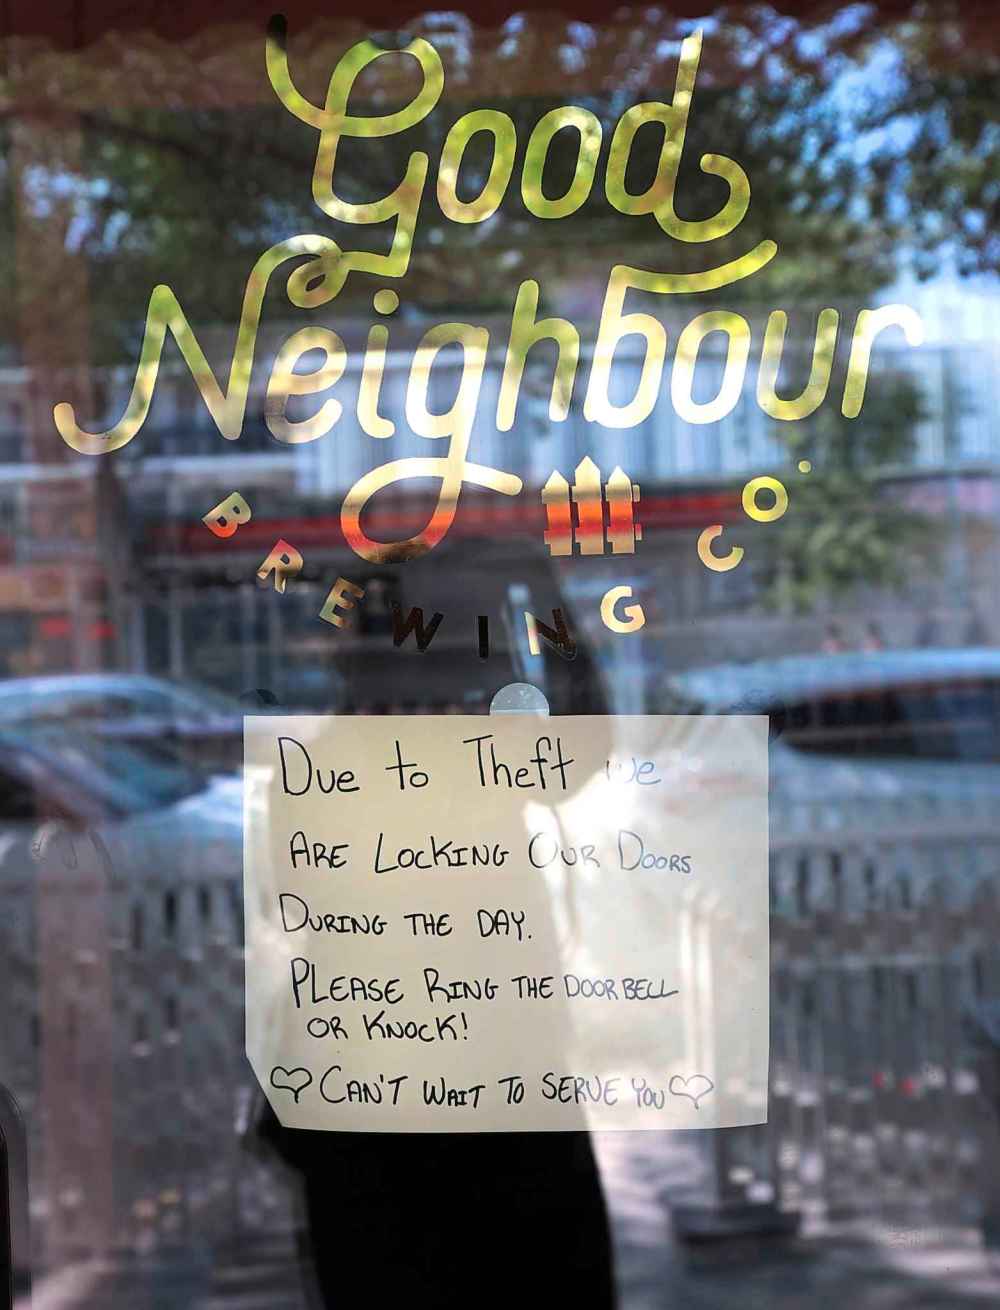 Good
Neighbour
BREWING CO.
Due to Theft we
ARE LOCKING OUR DOORS
DURING THE DAY.
PLEASE RING THE DOORBELL
OR KNOCK!
♡ CAN'T WAIT TO SERVE YOU ♡